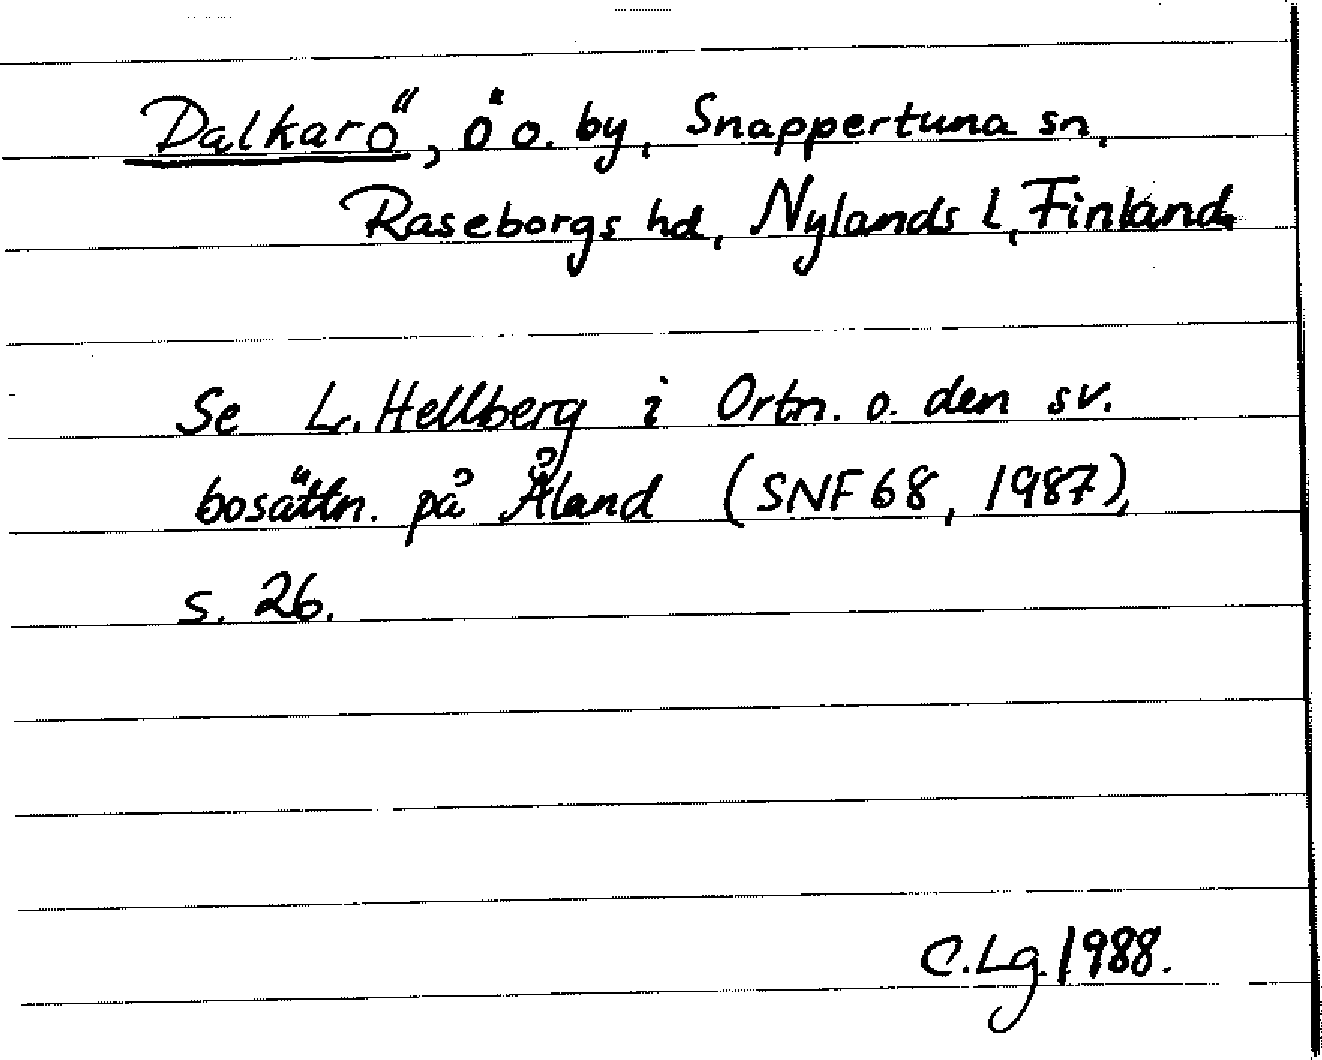 Dalkarö, ö o. by, Snappertuna sn,
Raseborgs hd, Nylands l, Finland.
Se L. Hellberg i Ortn. o. den sv.
bosättn. på Åland (SNF 68, 1987),
s. 26.
C. Lg. 1988.